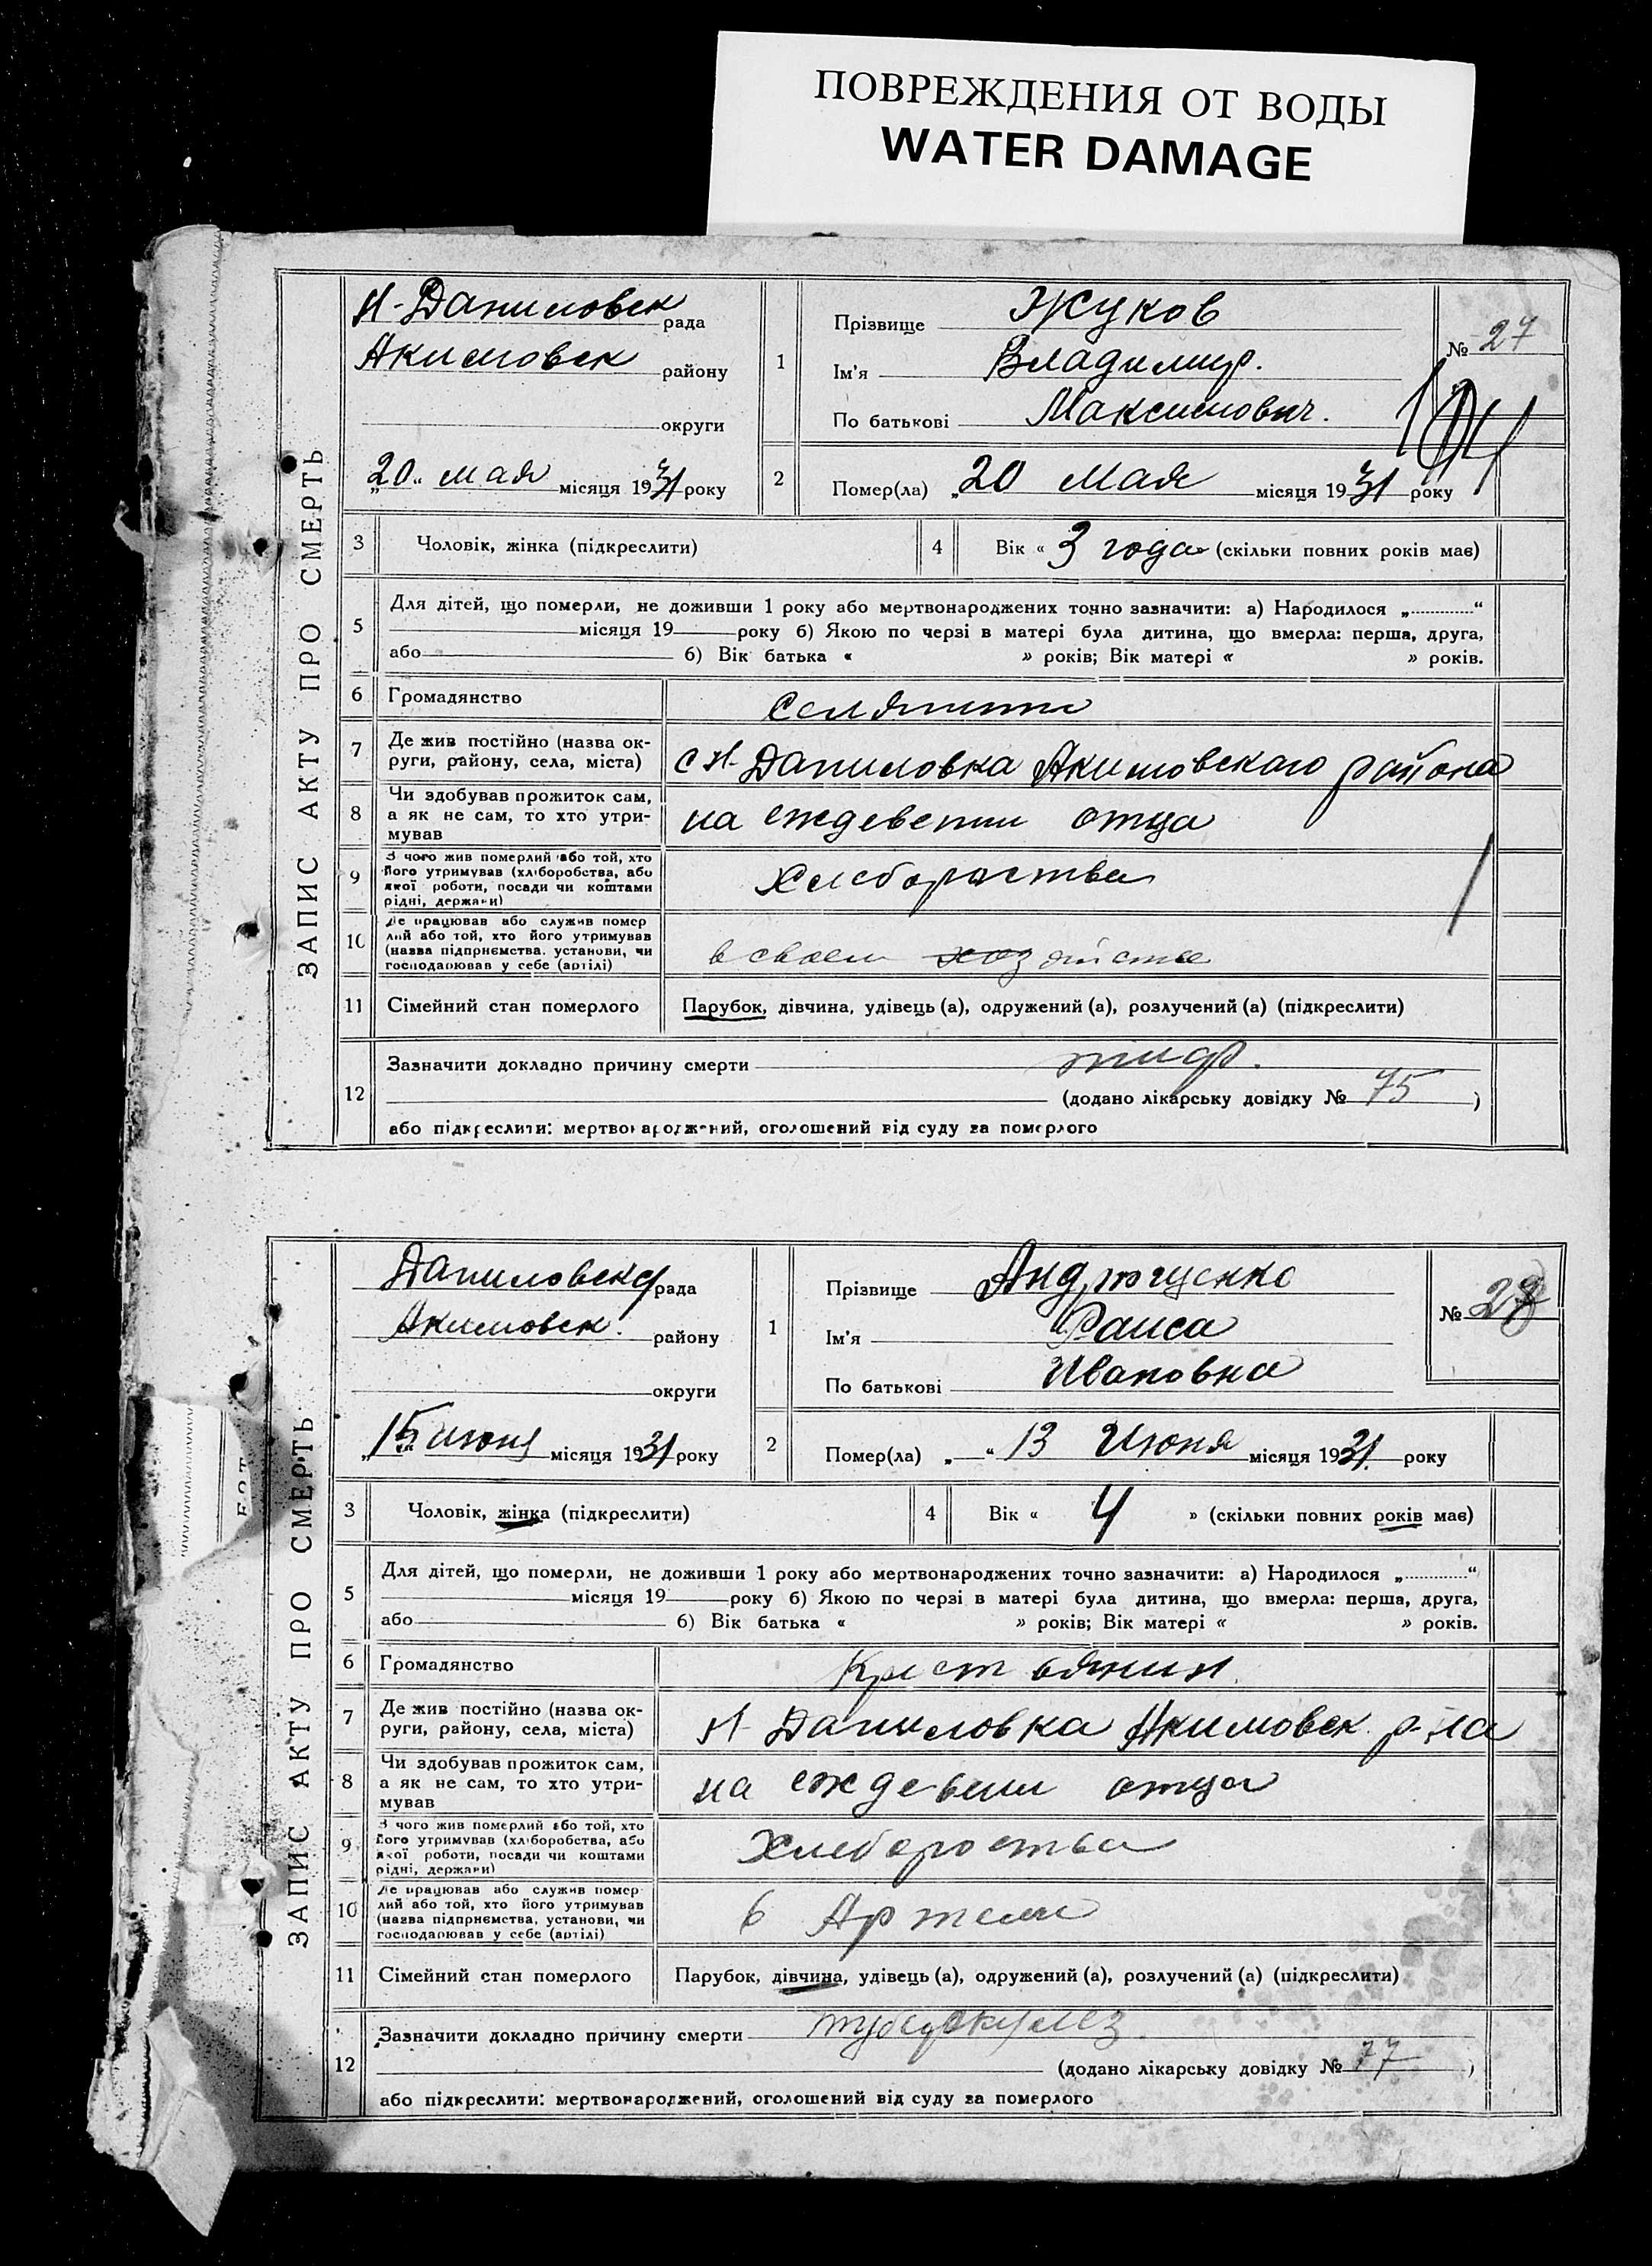 ПОВРЕЖДЕНИЯ ОТ ВОДЫ
WATER DAMAGE
ЗАПИС АКТУ ПРО СМЕРТЬ
Н-Даниловск рада
Акимовск району
округи
„20“ мая місяця 1931 року
1
Прізвище Жуков
Ім'я Владимир.
По батькові Максимович.
№ 27
2
Помер(ла) „20 Мая місяця 1931 року
3
Чоловік, жінка (підкреслити)
4
Вік « 3 года (скільки повних років має)
5
Для дітей, що померли, не доживши 1 року або мертвонароджених точно зазначити: а) Народилося „............“
місяця 19 року б) Якою по черзі в матері була дитина, що вмерла: перша, друга,
або б) Вік батька « » років; Вік матері « » років.
6
Громадянство
7
Де жив постійно (назва ок-
руги, району, села, міста)
с Н-Даниловка Акимовского района
8
Чи здобував прожиток сам,
а як не сам, то хто утри-
мував
на еждевении отца
9
З чого жив померлий або той, хто
його утримував (хліборобства, або
якої роботи, посади чи коштами
рідні, держави)
10
Де працював або служив помер
лий або той, хто його утримував
(назва підприємства, установи, чи
господарював у себе (артілі)
в своем
11
Сімейний стан померлого
Парубок, дівчина, удівець (а), одружений (а), розлучений (а) (підкреслити)
12
Зазначити докладно причину смерти тиф.
(додано лікарську довідку № 75 )
або підкреслити: мертвонароджений, оголошений від суду за померлого
ЗАПИС АКТУ ПРО СМЕРТЬ
Даниловска рада
Акимовск. району
округи
„15“ июня місяця 1931 року
1
Прізвище Андрющенко
Ім'я Раиса
По батькові Ивановна
№ 28
2
Помер(ла) „ “ 13 Июня місяця 1931. року
3
Чоловік, жінка (підкреслити)
4
Вік « 4 » (скільки повних років має)
5
Для дітей, що померли, не доживши 1 року або мертвонароджених точно зазначити: а) Народилося „............“
місяця 19 року б) Якою по черзі в матері була дитина, що вмерла: перша, друга,
або б) Вік батька « » років; Вік матері « » років.
6
Громадянство
Крестьянин
7
Де жив постійно (назва ок-
руги, району, села, міста)
Н-Даниловка Акимовск. р-на
8
Чи здобував прожиток сам,
а як не сам, то хто утри-
мував
на еждевении отца
9
З чого жив померлий або той, хто
його утримував (хліборобства, або
якої роботи, посади чи коштами
рідні, держави)
10
Де працював або служив помер
лий або той, хто його утримував
(назва підприємства, установи, чи
господарював у себе (артілі)
в Артели
11
Сімейний стан померлого
Парубок, дівчина, удівець (а), одружений (а), розлучений (а) (підкреслити)
12
Зазначити докладно причину смерти туберкулез.
(додано лікарську довідку № 77 )
або підкреслити: мертвонароджений, оголошений від суду за померлого